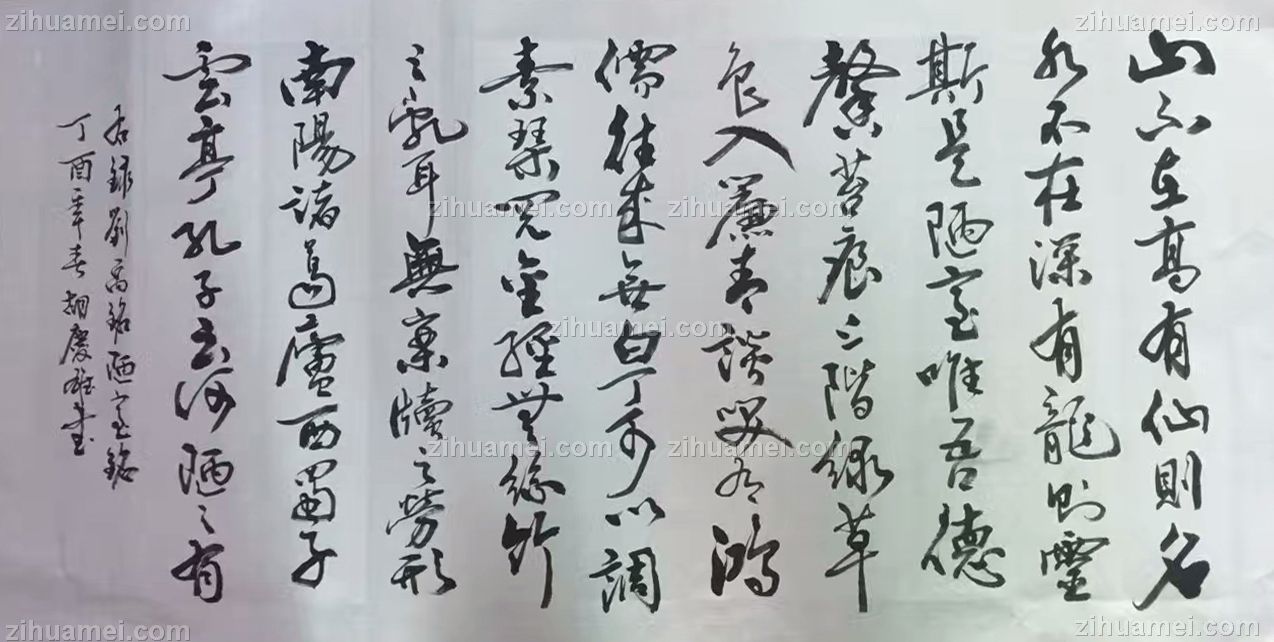 山不在高有仙則名
水不在深有龍則靈
斯是陋室唯吾德
馨苔痕上階綠草
色入簾青談笑有鴻
儒往來無白丁可以調
素琴閱金經無絲竹
之亂耳無案牘之勞形
南陽諸葛廬西蜀子
雲亭孔子云何陋之有
右錄劉禹錫陋室銘
丁酉年春胡慶雄書
zihuamei.com
zihuamei.com
zihuamei.com
zihuamei.com
zihuamei.com
zihuamei.com
zihuamei.com
zihuamei.com
zihuamei.com